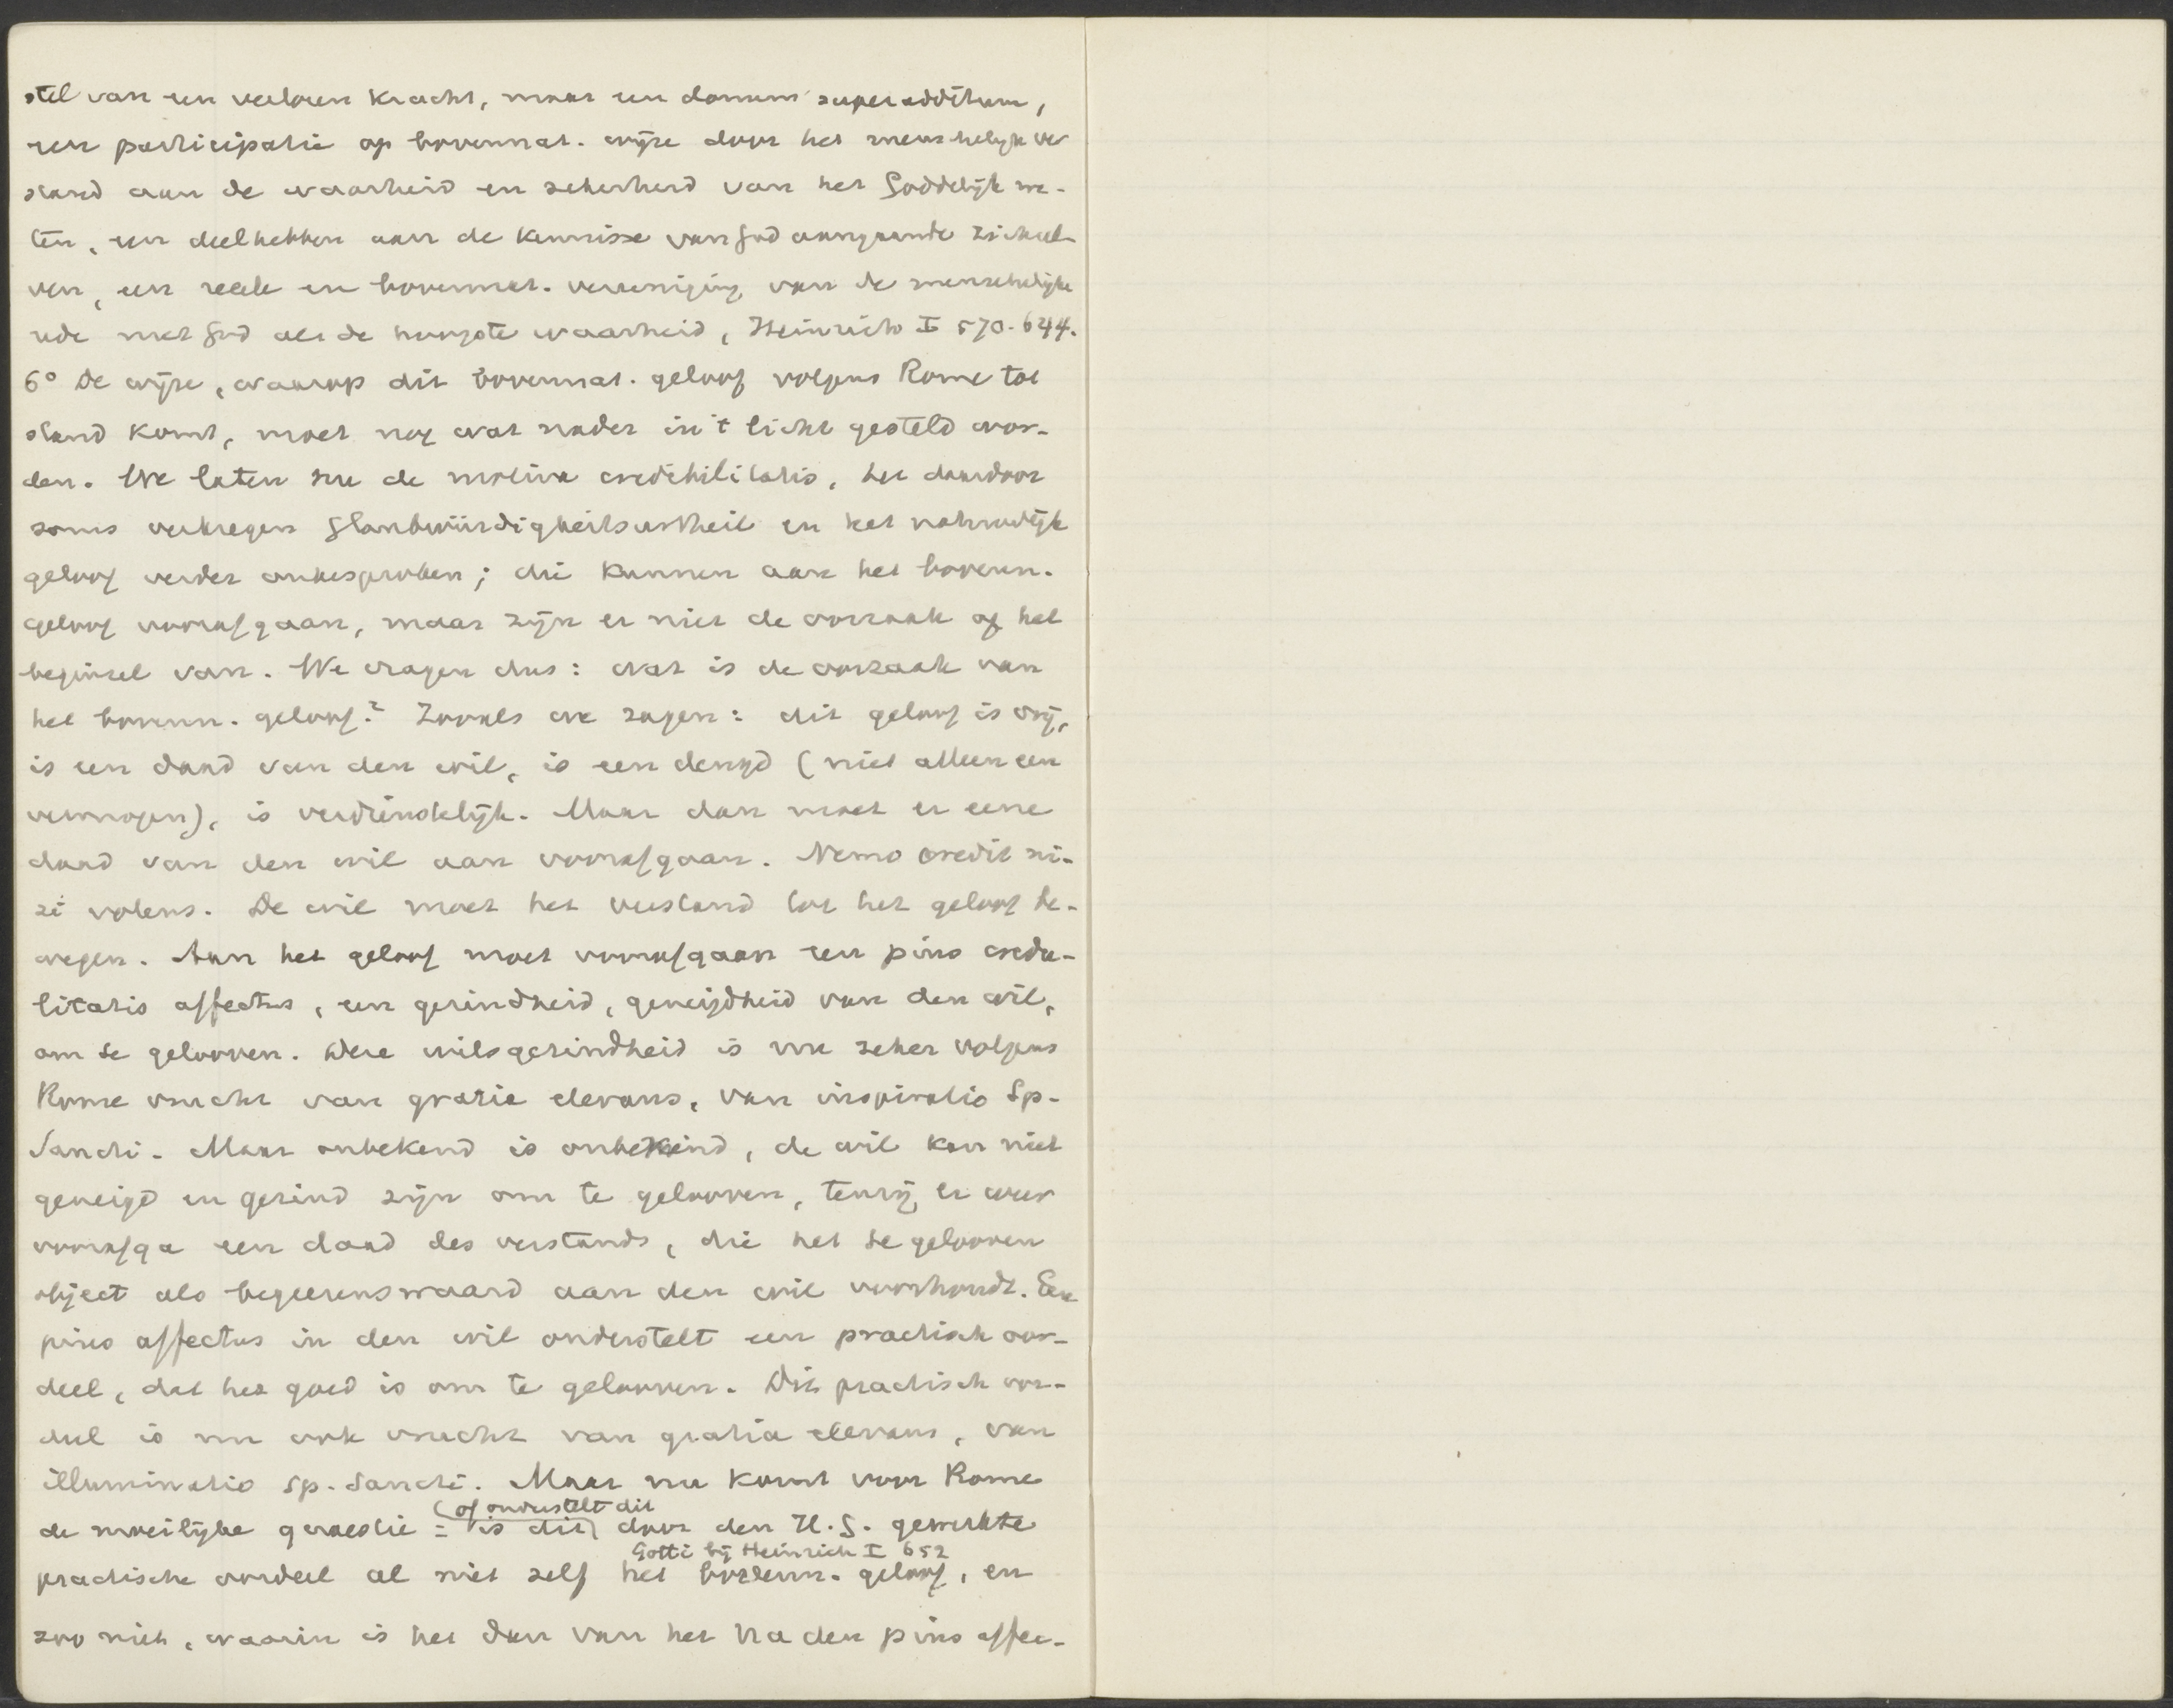 stel van een verloren kracht, maar een donum superadditum,
een participatie op bovennat. wijze door het menschelijk ver
stand aan de waarheid en zekerheid van het Goddelijk we-
ten, een deelhebben aan de kennisse van God aangaande zichzel-
ven, een reëele en bovennat. vereeniging van de menschelijke
rede met God als de hoogste waarheid, Heinrich I 570-644.
6° De wijze, waarop dit bovennat. geloof volgens Rome tot
stand komt, moet nog wat nader in 't licht gesteld wor-
den. We laten nu de motiva credibilitatis, het daardoor
soms verkregen Glaubwürdigkeitsurtheil en het natuurlijk
geloof verder onbesproken; die kunnen aan het bovenn.
geloof voorafgaan, maar zijn er niet de oorzaak of het
beginsel van. We vragen dus: wat is de oorzaak van
het bovenn. geloof? Zooals we zagen: dit geloof is vrij,
is een daad van den wil, is een deugd (niet alleen een
vermogen), is verdienstelijk. Maar dan moet er eene
daad van den wil aan voorafgaan. Nemo credit ni-
si volens. De wil moet het verstand tot het geloof be-
wegen. Aan het geloof moet voorafgaan een pius credu-
litatis affectus, een gezindheid, geneigdheid van den wil,
om te gelooven. Deze wilsgezindheid is nu zeker volgens
Rome vrucht van gratia elevans, van inspiratio Sp.
Sancti. Maar onbekend is onbemind, de wil kan niet
geneigd en gezind zijn om te gelooven, tenzij er weer
voorafga een daad des verstands, die het te gelooven
object als begeerenswaard aan den wil voorhoudt. Een
pius affectus in den wil onderstelt een practisch oor-
deel, dat het goed is om te gelooven. Dit practisch oor-
deel is nu ook vrucht van gratia elevans, van
illuminatio Sp. Sancti. Maar nu komt voor Rome
(of onderstelt dit
de moeilijke quaestie: is dit) door den H.G. gewerkte
Gotti bij Heinrich I 652
practische oordeel al niet zelf het bovenn. geloof, en
zoo niet, waarin is het dan van het na den pius affec-